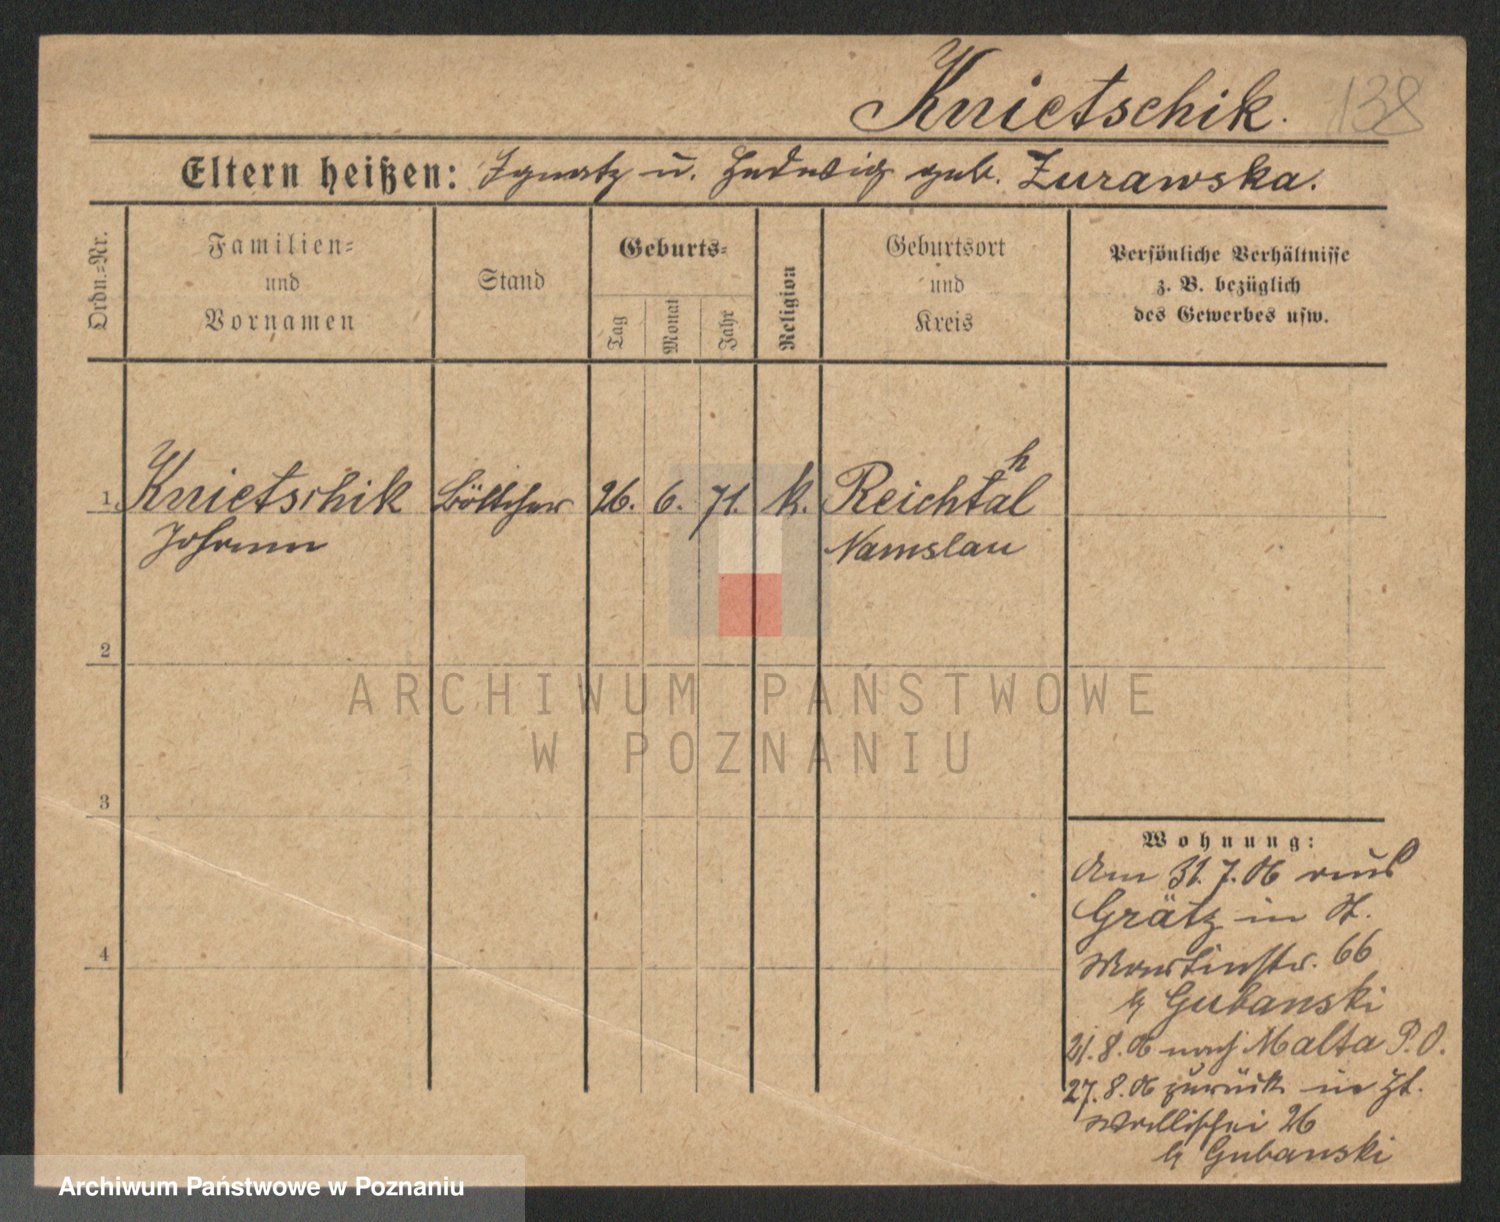 Knietschik. 138
Eltern heißen: Ignatz u. Hedwig geb. Zurawska.
Ordn.-Nr.
Familien-
und
Vornamen
Stand
Geburts-
Tag
Monat
Jahr
Religion
Geburtsort
und
Kreis
Persönliche Verhältnisse
z. B. bezüglich
des Gewerbes usw.
1. Knietschik Böttcher 26. 6. 71. k. Reichthal
Johann Namslau
2
3
4
ARCHIWUM PAŃSTWOWE
W POZNANIU
Wohnung:
Am 31.7.06 aus
Grätz in St.
Martinstr. 66
b/ Gubanski
21.8.06 nach Malta P.O.
27.8.06 zurück in
Wallischei 26
b/ Gubanski
Archiwum Państwowe w Poznaniu